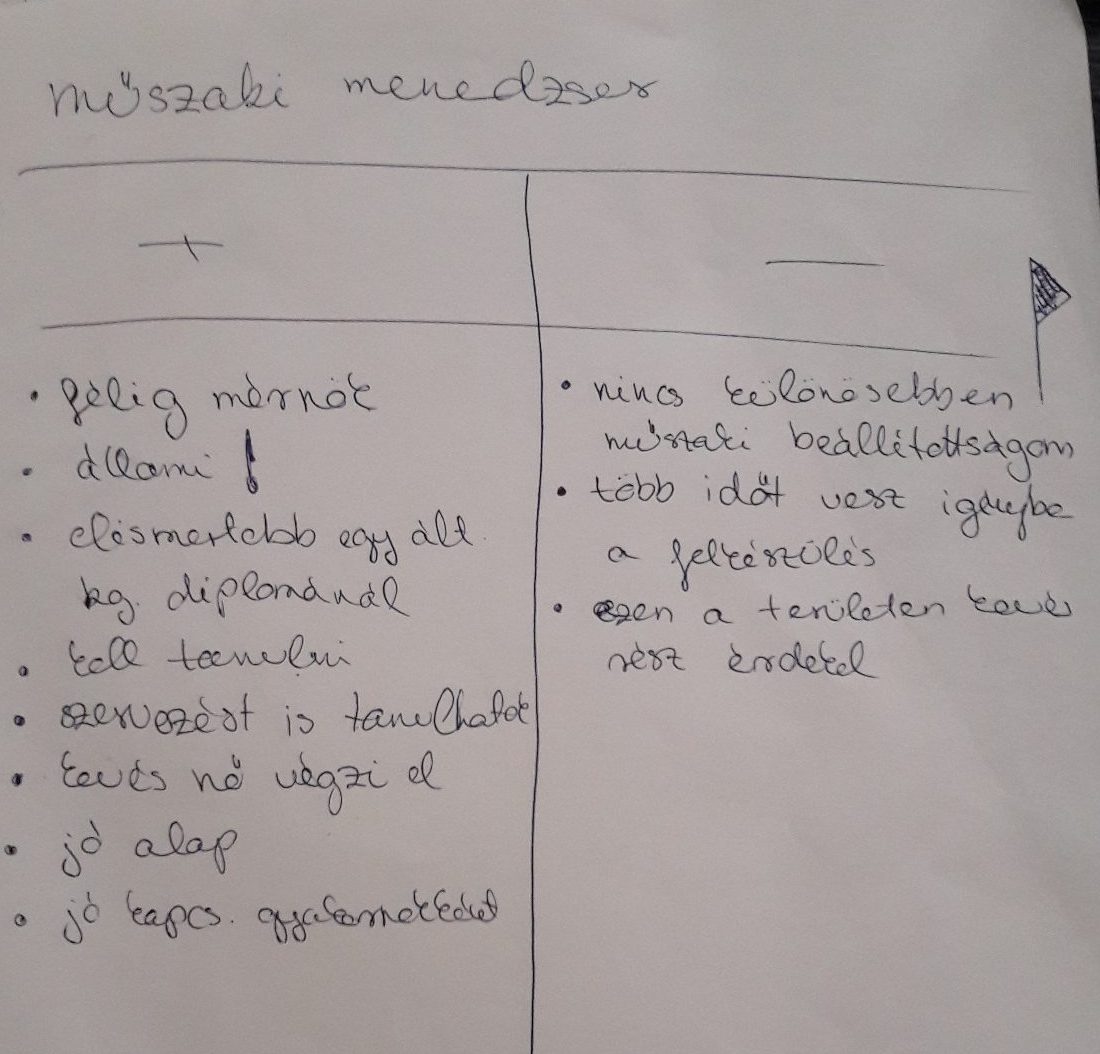 műszaki menedzser
+
—
• félig mérnök
• állami !
• elismertebb egy ált.
kg. diplománál
• kell tanulni
• szervezést is tanulhatok
• kevés nő végzi el
• jó alap
• jó kapcs. gyakornokként
• nincs különösebben
műszaki beállítottságom
• több időt vesz igénybe
a felkészülés
• ezen a területen kevés
rész érdekel